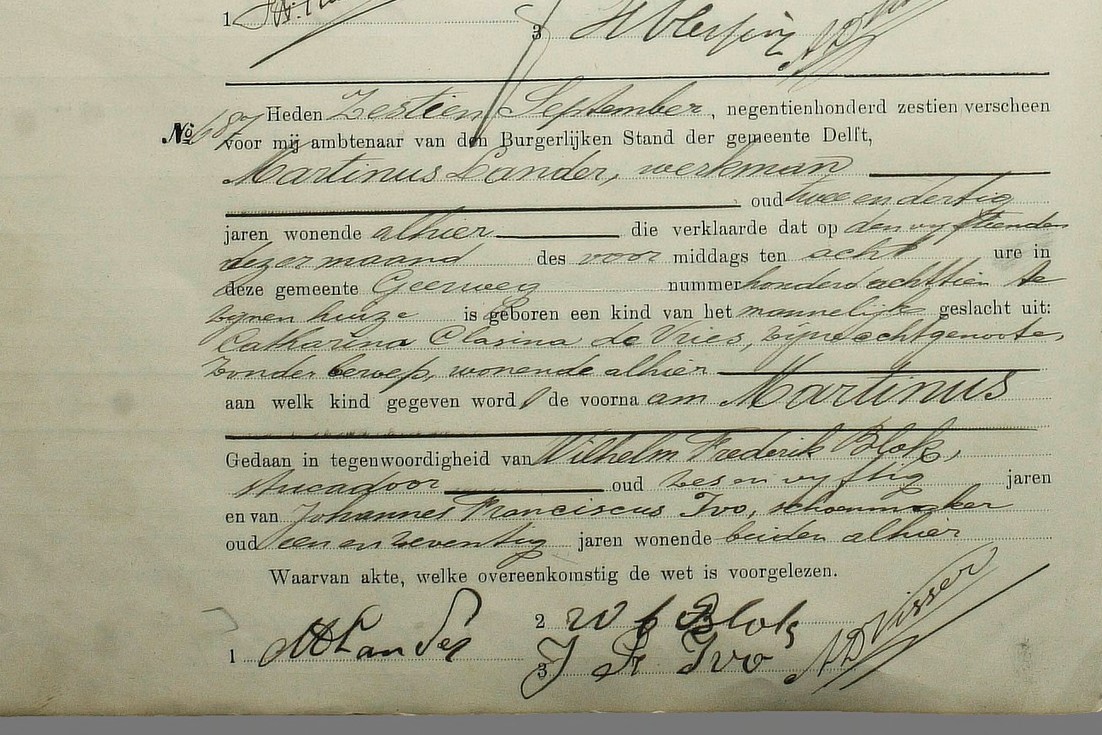 1 3
Heden Zestien September, negentienhonderd zestien verscheen
No 687 voor mij ambtenaar van den Burgerlijken Stand der gemeente Delft,
Martinus Lander, werkman
oud twee en dertig
jaren wonende alhier die verklaarde dat op den vijftienden
dezer maand des voor middags ten acht ure in
deze gemeente Geerweg nummer honderd achttien te
zijnen huize is geboren een kind van het mannelijke geslacht uit:
Catharina Clasina de Vries, zijne echtgenoote,
zonder beroep, wonende alhier
aan welk kind gegeven word de voornaam Martinus
Gedaan in tegenwoordigheid van Wilhelm Frederik Blok,
stucadoor oud zes en vijftig jaren
en van Johannes Franciscus Ivo, schoenmaker
oud een en zeventig jaren wonende beiden alhier
Waarvan akte, welke overeenkomstig de wet is voorgelezen.
1 M Lander 2 W f Blok
3 J Fr Ivo AD Visser